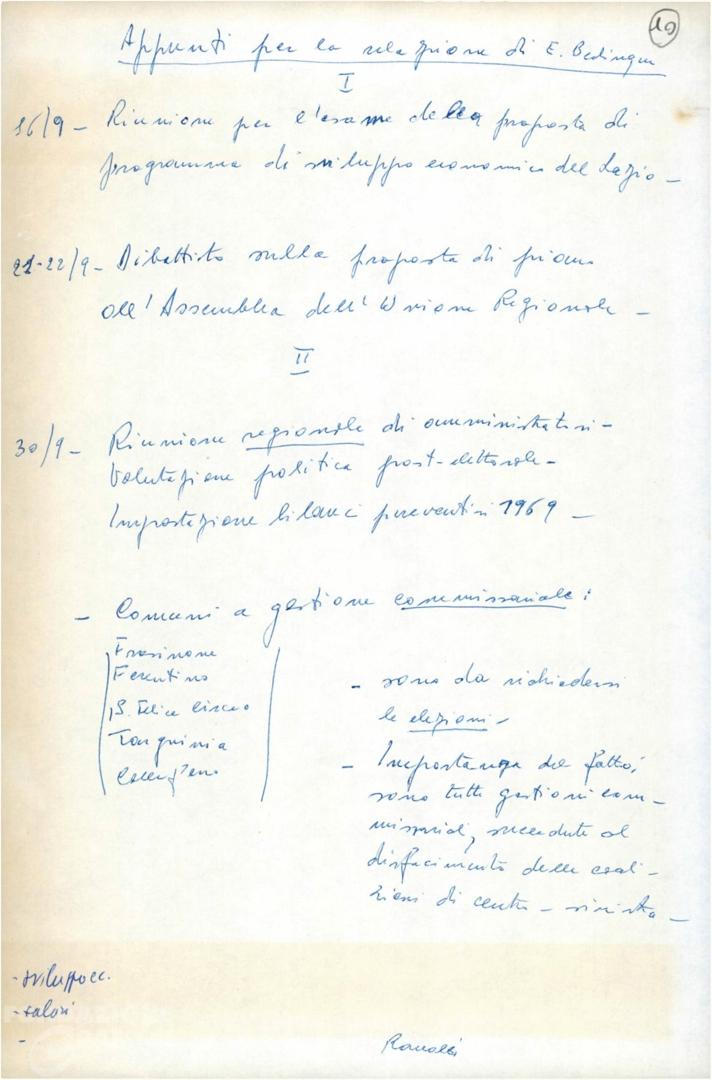 10
Appunti per la relazione di E. Berlinguer
I
16/9 - Riunione per l'esame della proposta di
programma di sviluppo economico del Lazio -
21-22/9 - Dibattito sulla proposta di piano
all'Assemblea dell'Unione Regionale -
II
30/9 - Riunione regionale di amministratori -
Valutazione politica post-elettorale -
Impostazione bilanci preventivi 1969 -
- Comuni a gestione commissariale:
Frosinone
Ferentino
S. Felice Circeo
Tarquinia
- sono da richiedersi
le elezioni -
- Importanza del fatto:
sono tutte gestioni com-
missariali, succedute al
disfacimento delle coali-
zioni di centro-sinistra -
- sviluppo ec.
- salari
-
Ranalli